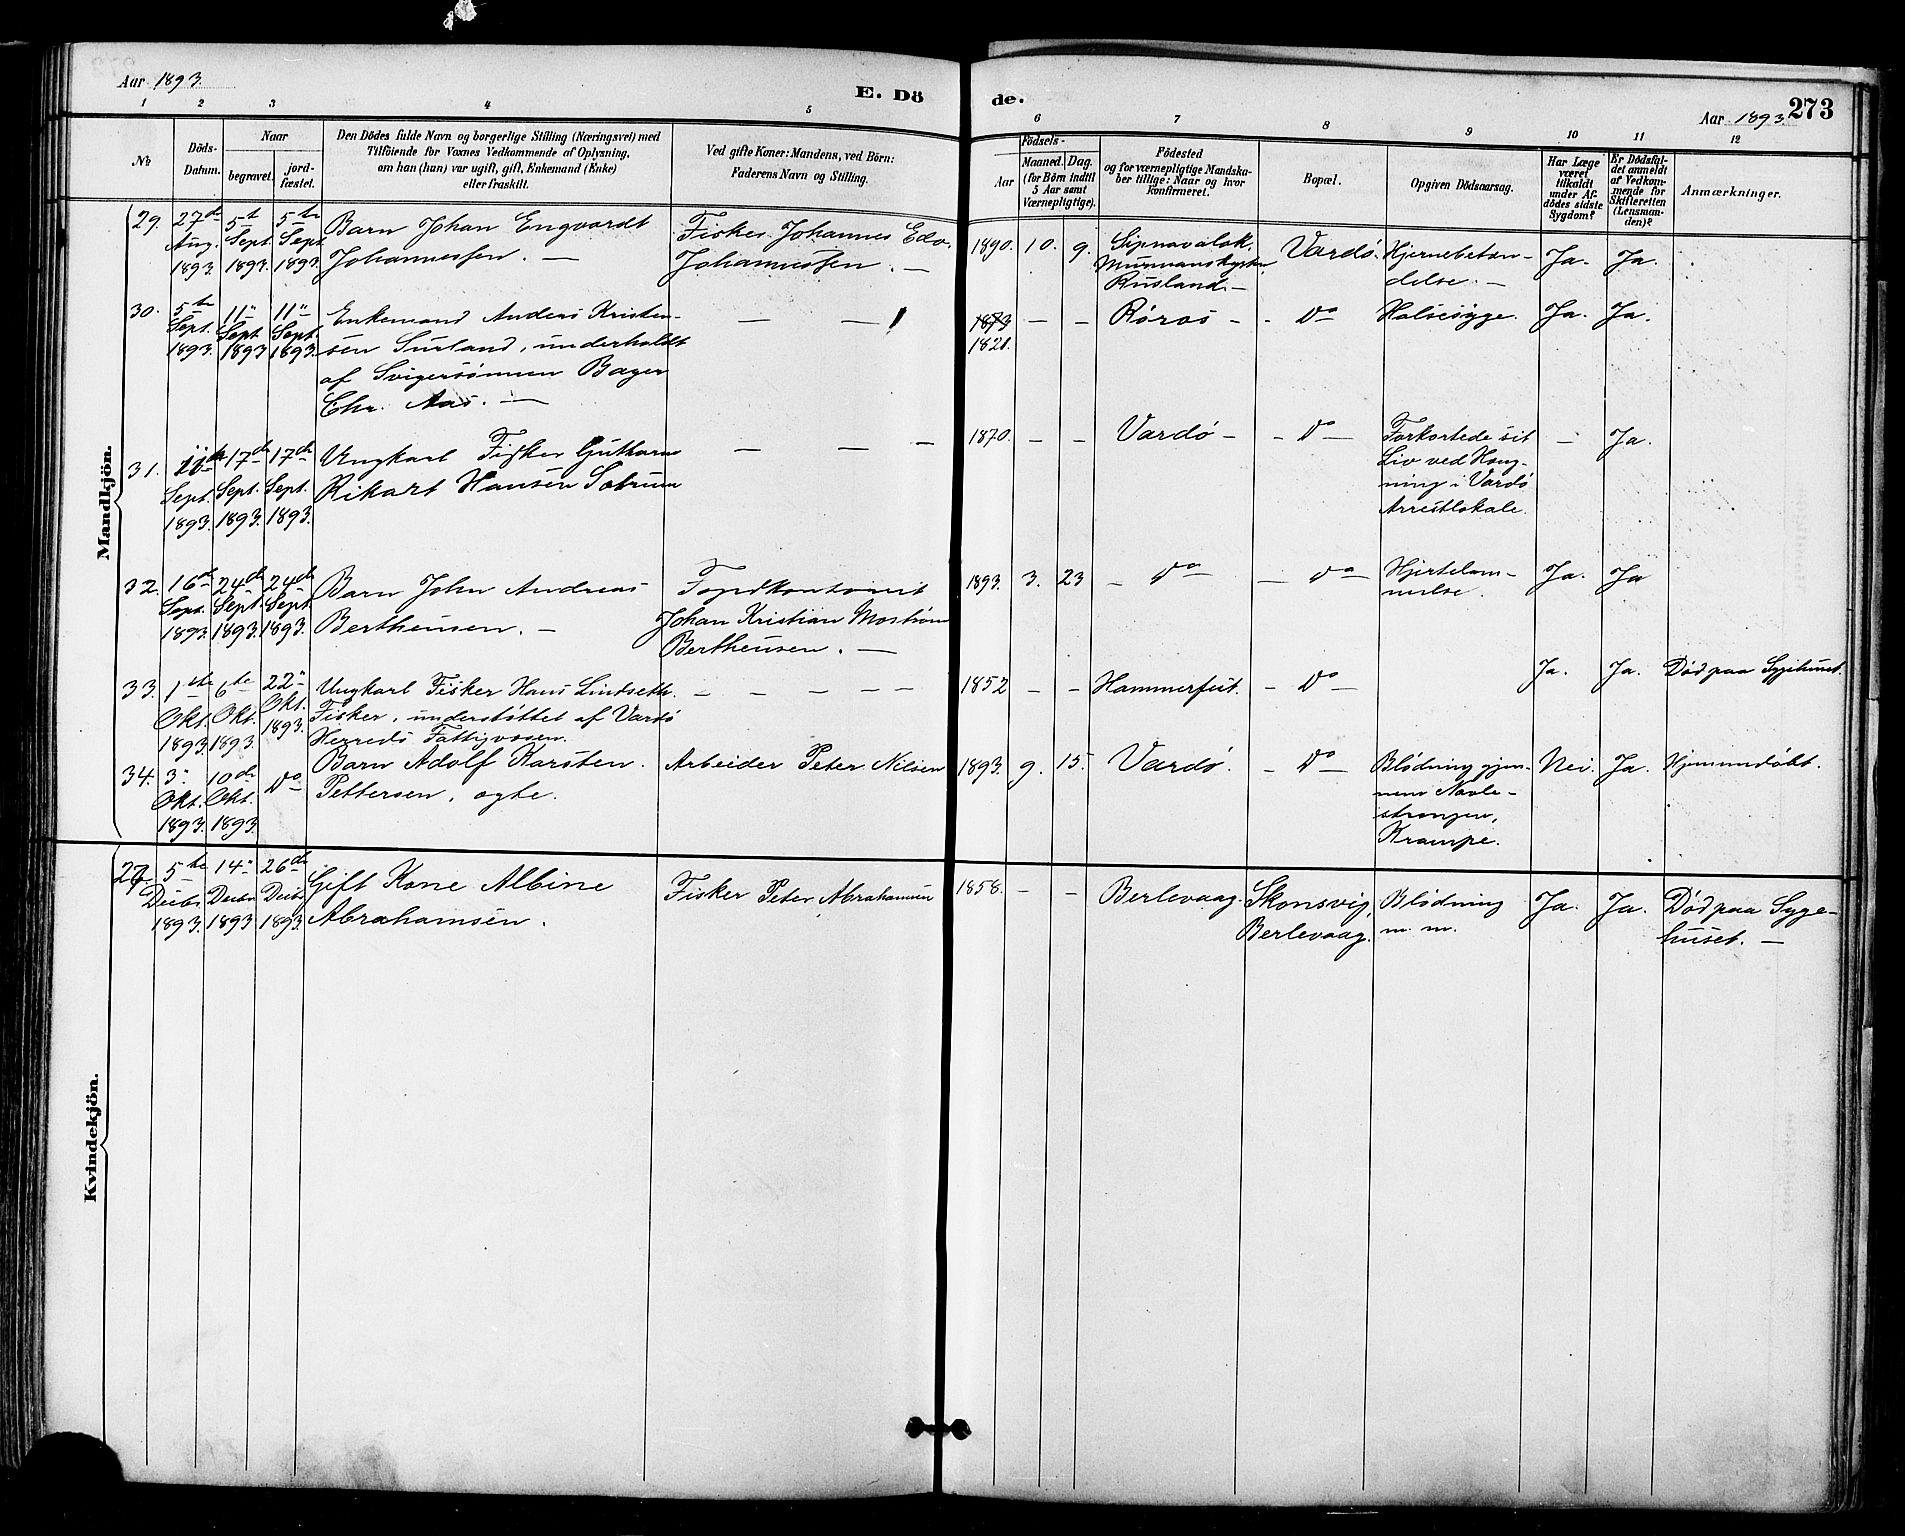 Aar 1893.
E. Dö
de.
Aar 1893.
273
1 2 3 4 5 6 7 8 9 10 11 12
No
Döds-Datum.
Naar
begravet.
jordfæstet.
Den Dödes fulde Navn og borgerlige Stilling (Næringsvei) med
Tilföiende for Voxnes Vedkommende af Oplysning,
om han (hun) var ugift, gift, Enkemand (Enke)
eller fraskilt.
Ved gifte Koner: Mandens, ved Börn:
Faderens Navn og Stilling.
Födsels-
Aar
Maaned. Dag.
(for Börn indtil
5 Aar samt
Værnepligtige).
Födested
og for værnepligtige Mandskaber tillige: Naar og hvor
konfirmeret.
Bopæl.
Opgiven Dödsaarsag.
Har Læge
været
tilkaldt
under Afdödes sidste
Sygdom?
Er Dödsfaldet anmeldt
af Vedkommende for
Skifteretten
(Lensmanden)?
Anmærkninger.
Mandkjön.
29. 27de Aug. 1893. 5te Sept. 1893. 5te Sept. 1893.
Barn Johan Engvardt
Johannessen. —
Fisker Johannes Edv.
Johannessen. —
1890. 10. 9.
Murmanskysten
Rusland. —
Vardø.
Hjernebetændelse. —
Ja. Ja.
30. 5te Sept. 1893. 11" Sept. 1893 11" Sept. 1893.
Enkemand Anders Kristensen Surland, underholdt
af Svigersønnen Bager
Chr. Aas. —
— —
1873
1821.
— — Røros - - Do Halsesyge. Ja. Ja.
31. Sept. 1893. 17de Sept. 1893. 17de Sept. 1893.
Ungkarl Fisker
Rikart Hansen
— — —
1870. — — Vardø - - Do —
Forkortede sit
Liv ved Hængning i Vardø
Arrestlokale.
— Ja.
32. 16de Sept. 1893. 24de Sept. 1893. 24de Sept. 1893.
Barn John Andreas
Bertheusen. —
Fogedkontorist
Johan Kristian Mostrøm
Bertheusen. —
1893. 3. 23 — Do — — Do —
Hjertelammelse.
Ja. Ja
33. 1ste Okt. 1893. 6te Okt. 1893. 22" Okt. 1893.
Ungkarl Fisker Hans Lindseth.
Fisker, understøttet af Vardø
Herreds Fattigvæsen.
— — — — —
1852 — — Hammerfest. - Do — Ja. Ja. Død paa Sygehuset.
34. 3" Okt. 1893. 10de Okt. 1893. Do
Barn Adolf Karsten
Pettersen, ægte.
Arbeider Peter Nilsen
1893. 9. 15. Vardø. - Do —
Blødning gjennem Navlestrængen,
Krampe.
Nei. Ja. Hjemmedøbt.
Kvindekjön.
27. 5te Decbr. 1893. 14" Decbr. 1893 26de Decbr. 1893
Gift Kone Albine
Abrahamsen.
Fisker Peter Abrahamsen
1858. — — Berlevaag.
Skonsvig,
Berlevaag.
Blødning
m. m.
Ja. Ja.
Død paa Sygehuset. —